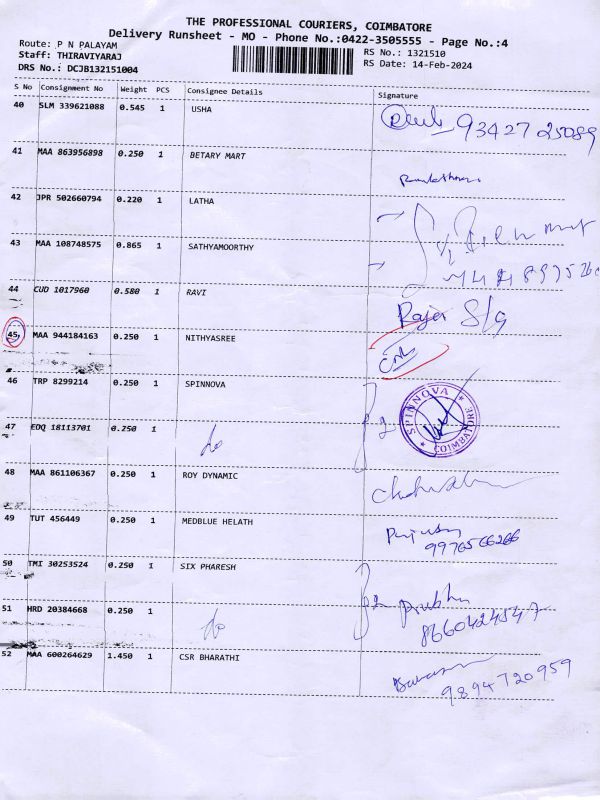 THE PROFESSIONAL COURIERS, COIMBATORE
Delivery Runsheet - MO - Phone No.:0422-3505555 - Page No.:4
Route: P N PALAYAM
Staff: THIRAVIYARAJ
DRS No.: DCJB132151004
RS No.: 1321510
RS Date: 14-Feb-2024
S No Consignment No Weight PCS Consignee Details Signature
40 SLM 339621088 0.545 1 USHA 93427 25089
41 MAA 863956898 0.250 1 BETARY MART
42 JPR 502660794 0.220 1 LATHA
43 MAA 108748575 0.865 1 SATHYAMOORTHY
44 CUD 1017960 0.580 1 RAVI Raja S/g
45 MAA 944184163 0.250 1 NITHYASREE
46 TRP 8299214 0.250 1 SPINNOVA
SPINNOVA * COIMBATORE *
47 EDQ 18113701 0.250 1 do
48 MAA 861106367 0.250 1 ROY DYNAMIC
49 TUT 456449 0.250 1 MEDBLUE HELATH
9976566266
50 TMI 30253524 0.250 1 SIX PHARESH
51 HRD 20384668 0.250 1 do Prabhu
8660424547
52 MAA 600264629 1.450 1 CSR BHARATHI
9894720959